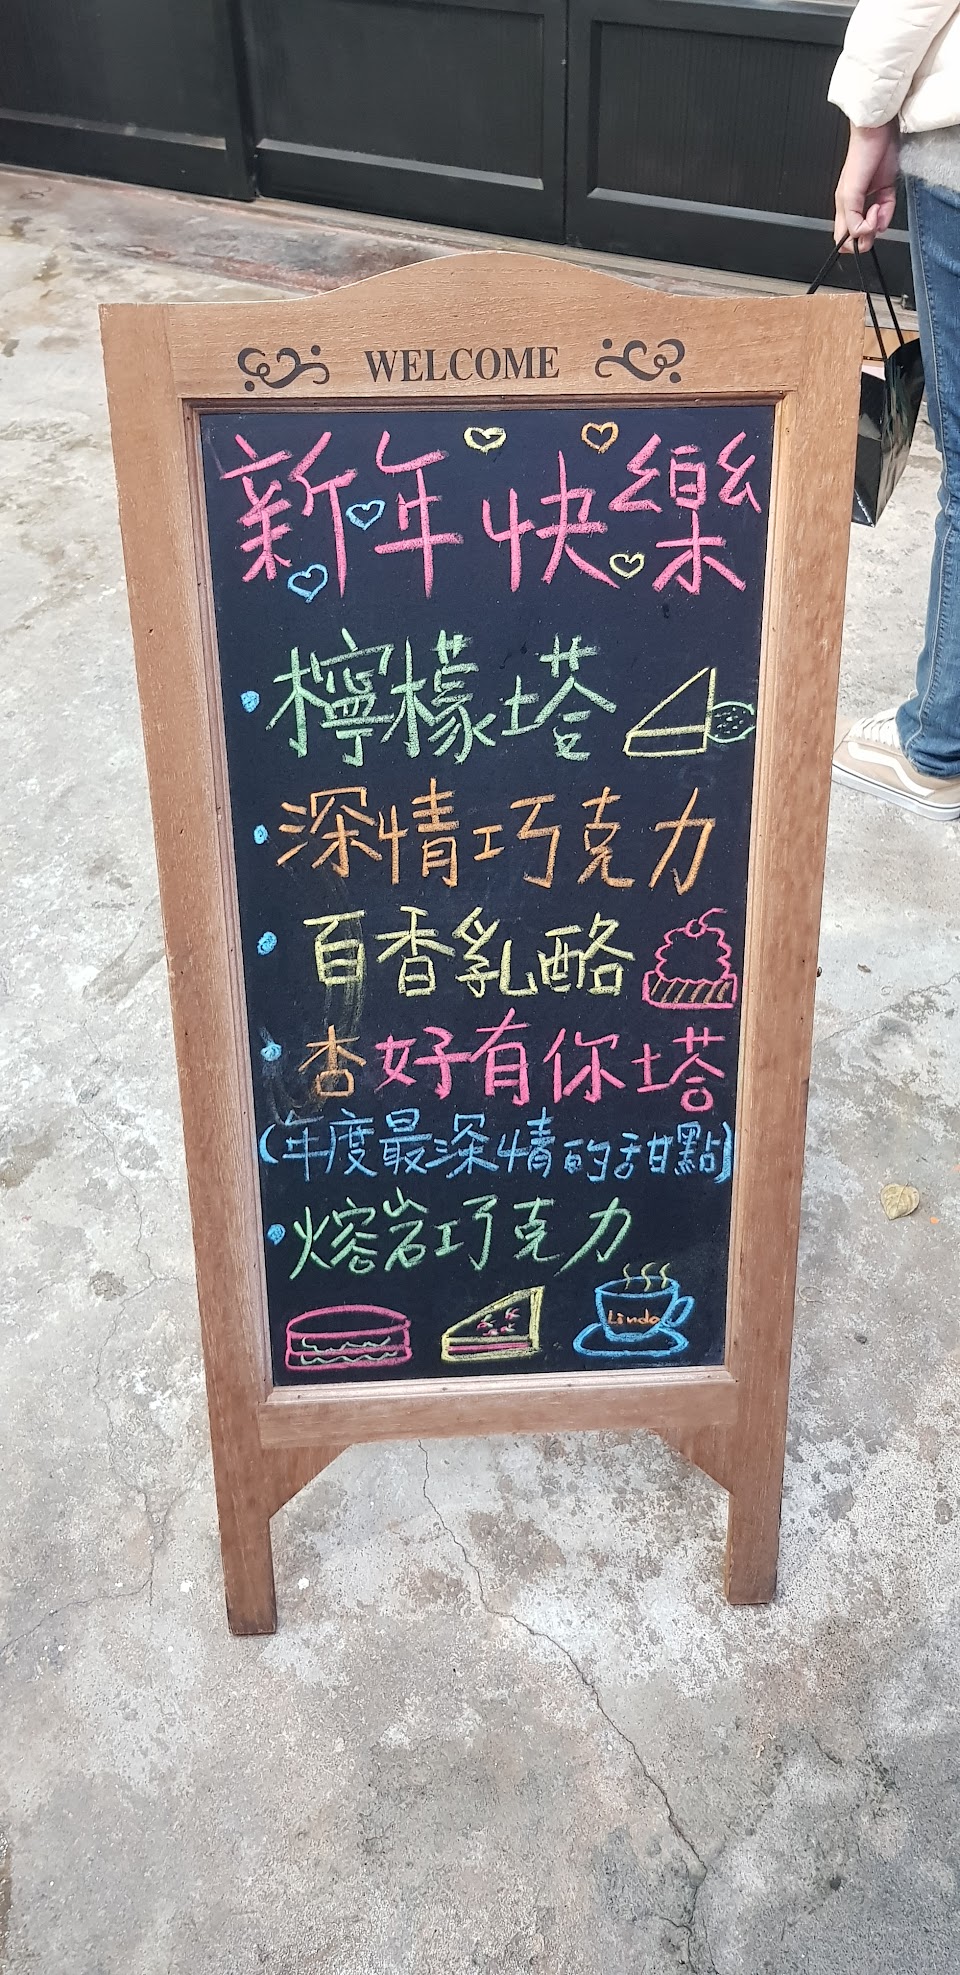 WELCOME
新年快樂
檸檬塔
深情巧克力
百香乳酪
杏好有你塔
(年度最深情的甜點)
熔岩巧克力
Linda